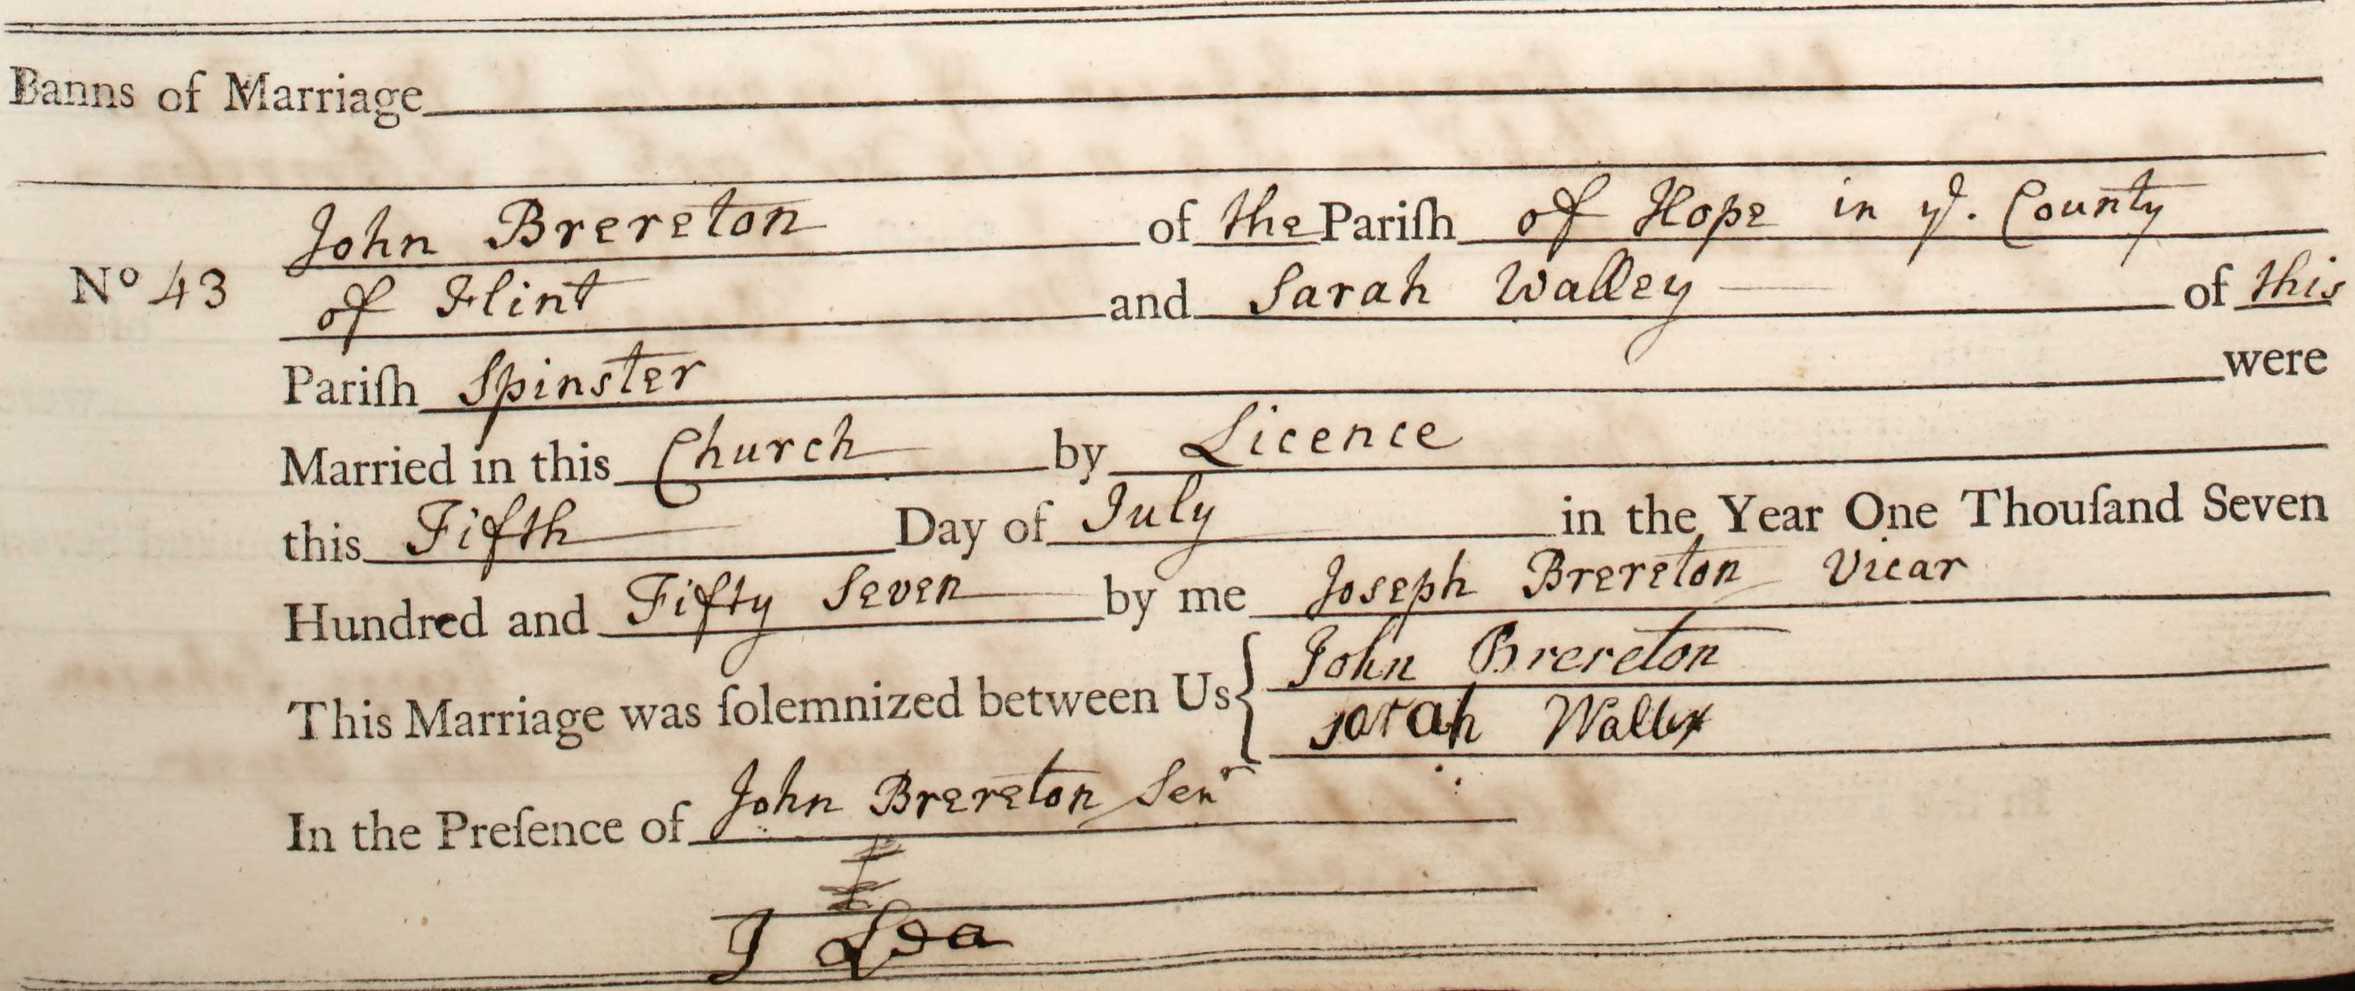 Banns of Marriage
John Brereton of the Pariſh of Hope in yͤ. County
Nº 43 of Flint and Sarah Walley of this
Pariſh Spinster were
Married in this Church by Licence
this Fifth Day of July in the Year One Thouſand Seven
Hundred and Fifty Seven by me Joseph Brereton Vicar
This Marriage was ſolemnized between Us { John Brereton
sarah Walley
In the Preſence of John Brereton Senʳ
J Lea